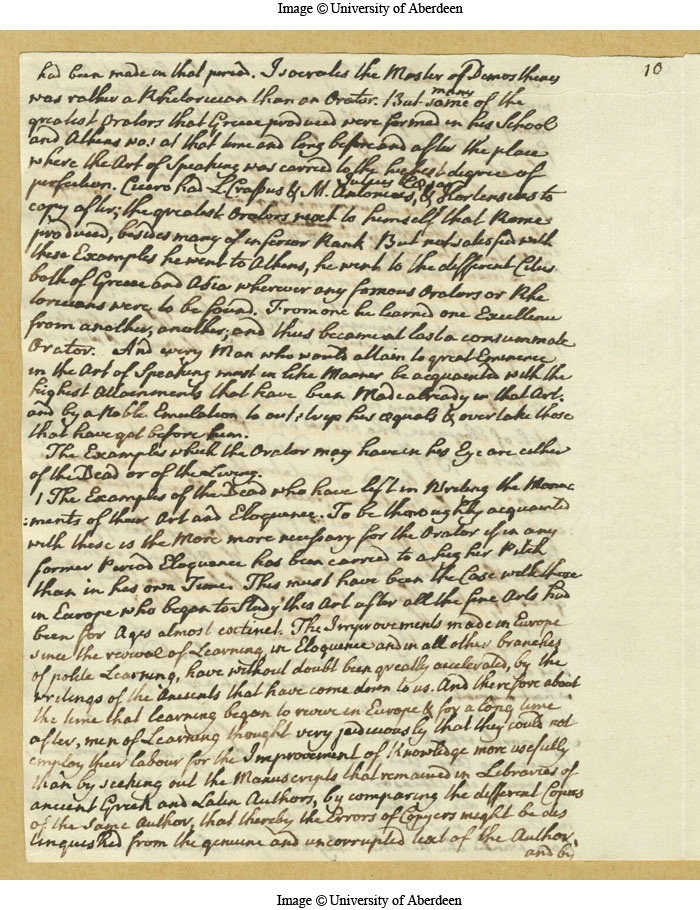 Image © University of Aberdeen
10
had been made in that period. Isocrates the Master of Demosthenes
was rather a Rhetorician than an Orator. But many some of the
greatest Orators that Greece produced were formed in his School
and Athens was at that time and long before and after the place
where the Art of Speaking was carried to the highest degree of
perfection. Cicero had L Crassus & M. Antonius, Julius Cæsar & Hortensius to
copy after; the greatest Orators next to himself that Rome
produced, besides many of inferior Rank. But not satisfied with
these Examples he went to Athens, he went to the different Cities
both of Greece and Asia wherever any famous Orators or Rhe
toricians were to be found. From one he learned one Excellence
from another, another; and thus became at last a consummate
Orator. And every Man who would attain to great Eminence
in the Art of Speaking must in like Manner be acquainted with the
highest Attainments that have been Made already in that Art,
and by a Noble Emulation to outstrip his equals & overtake those
that have got before him.
The Examples which the Orator may have in his Eye are either
of the Dead or of the Living.
1 The Examples of the Dead who have left in Writing the Monu
:ments of their Art and Eloquence. To be thoroughly acquainted
with these is the More more necessary for the Orator if in any
former Period Eloquence has been carried to a higher Pitch
than in his own Time. This must have been the Case with those
in Europe who began to Study this Art after all the fine Arts had
been for Ages almost extinct. The Improvements made in Europe
since the revival of Learning in Eloquence and in all other branches
of polite Learning, have without doubt been greatly accelerated, by the
writings of the Ancients that have come down to us. And therefore about
the time that learning began to revive in Europe & for a long time
after, men of Learning thought very judiciously that they could not
employ their labour for the Improvement of Knowledge more usefully
than by seeking out the Manuscripts that remained in Libraries of
ancient Greek and Latin Authors, by comparing the different Copies
of the same Author, that thereby the Errors of Copyers might be dis
tinguished from the genuine and uncorrupted text of the Author,
and by
Image © University of Aberdeen